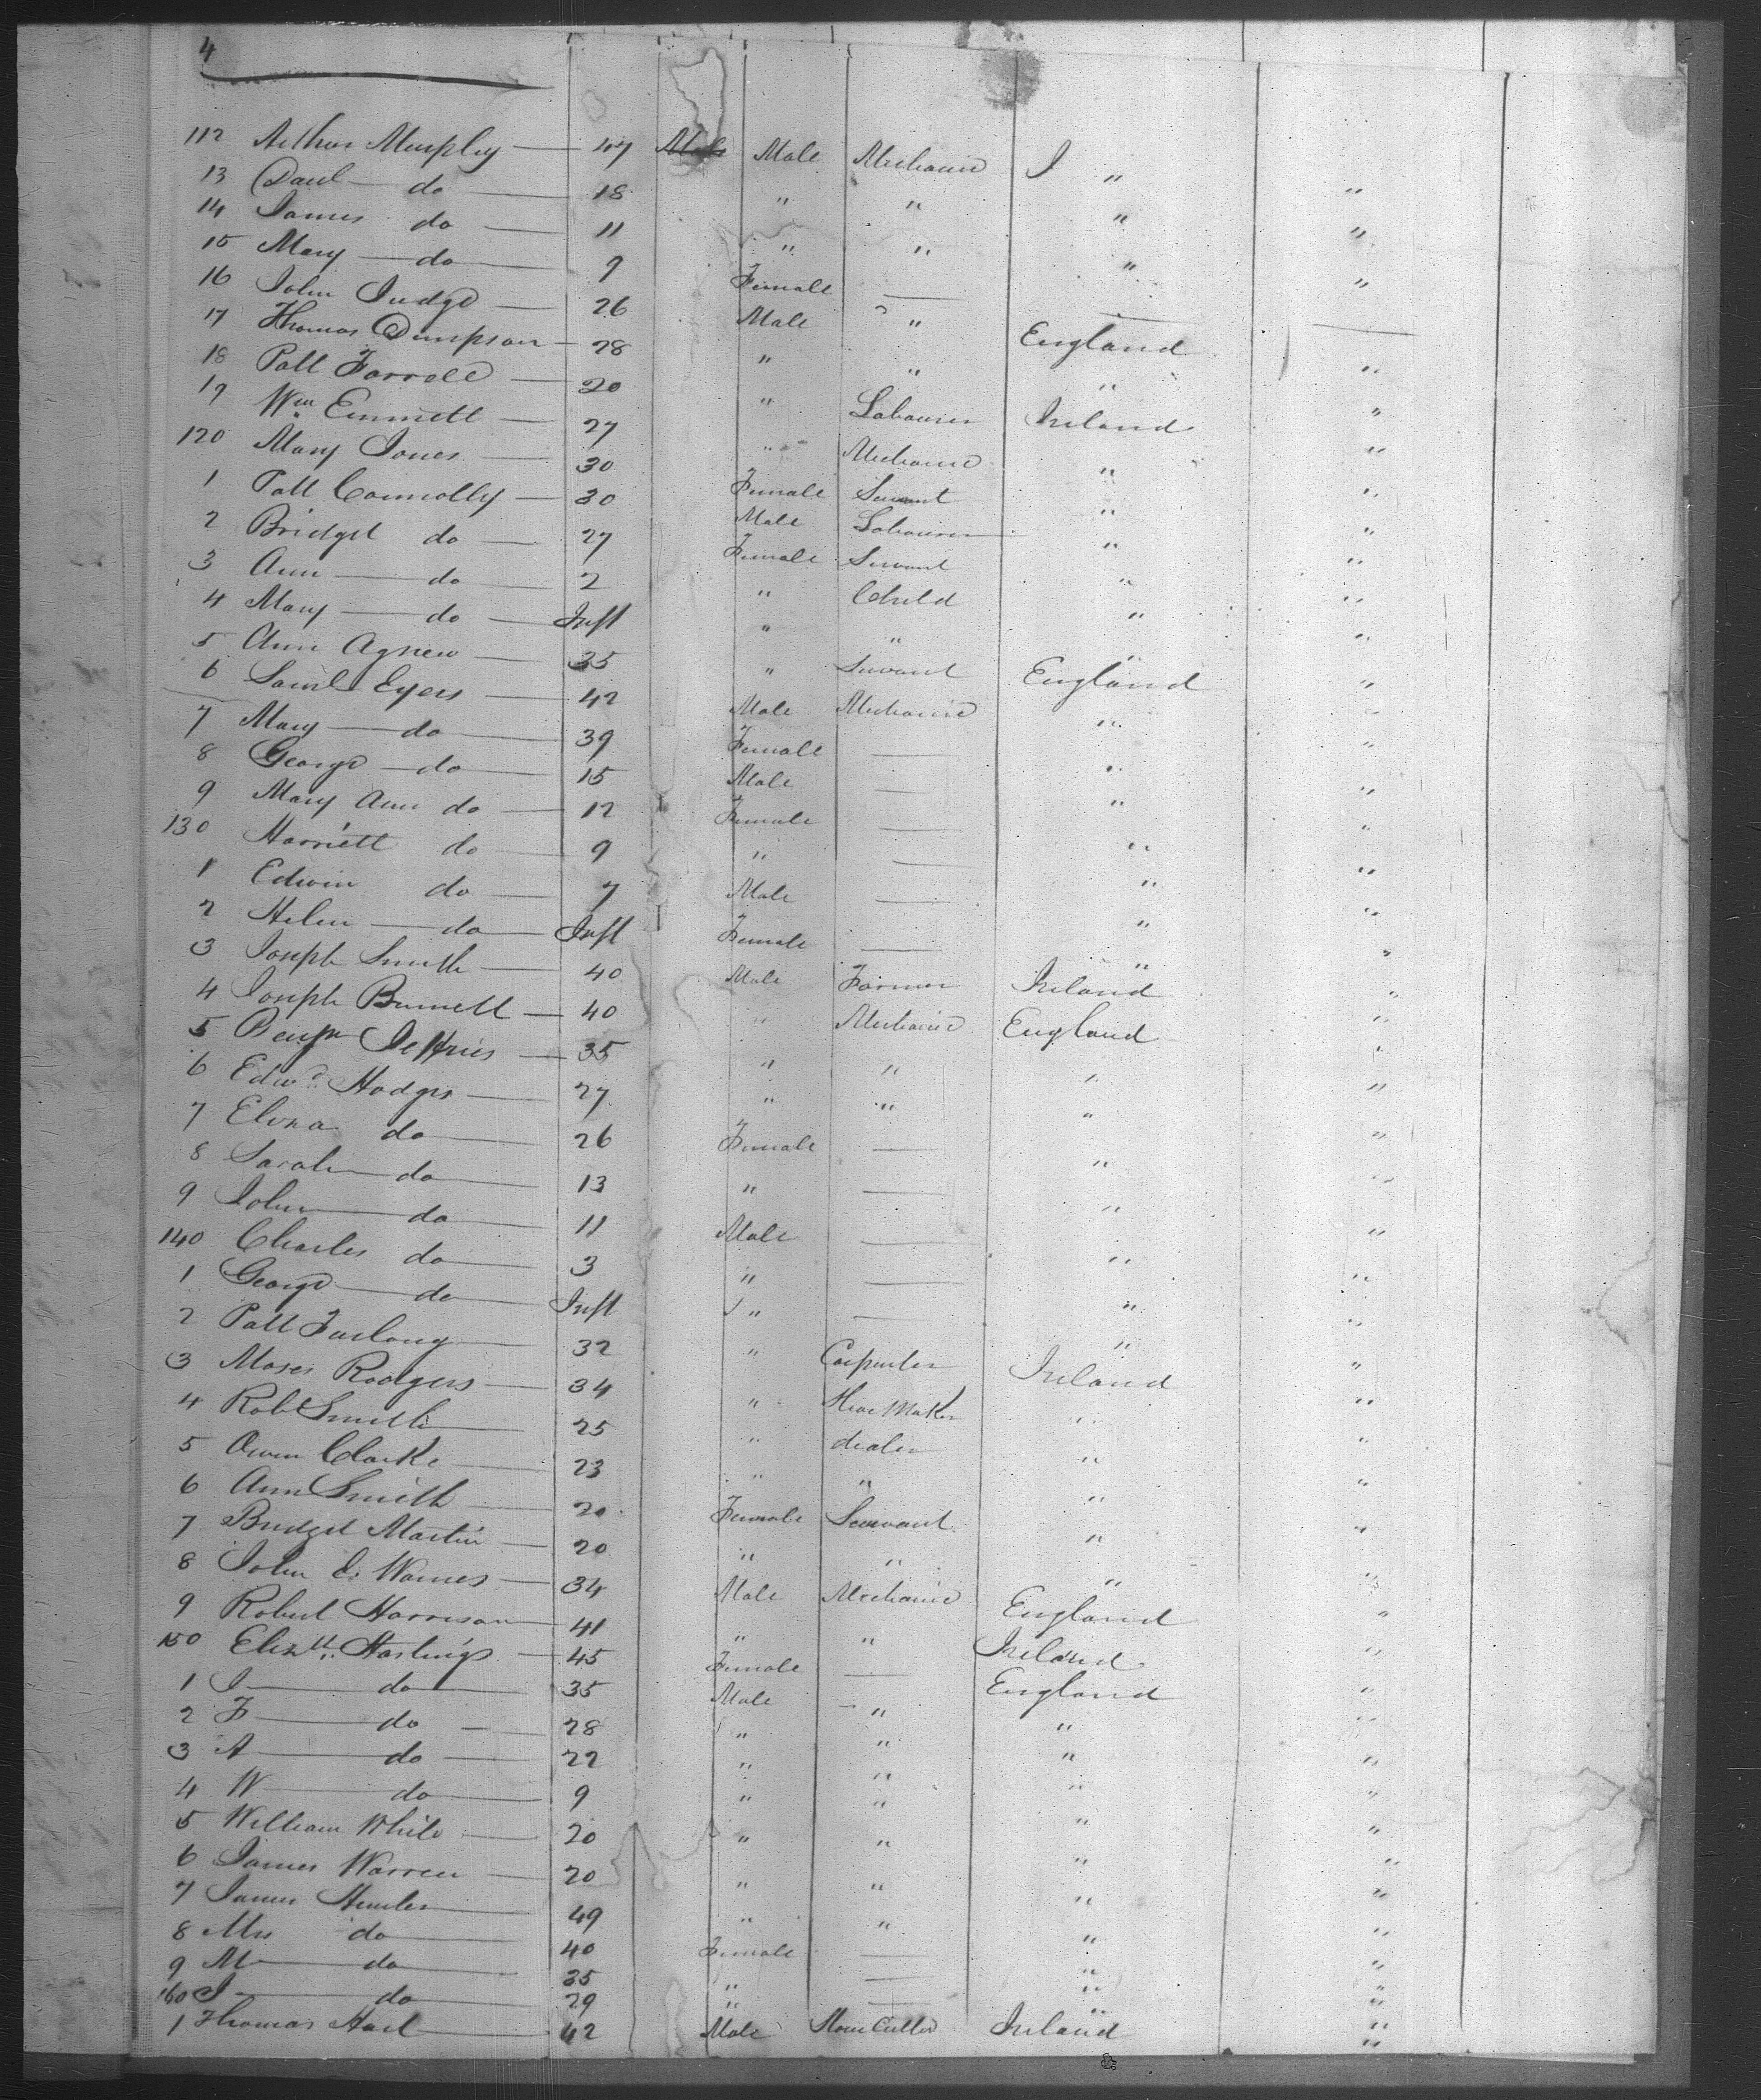 4
112 Arthur Murphy — 47 Male Male Mechanic I "
13 Paul — do — 18 " " " "
14 James do — 11 " " " "
15 Mary — do — 9 Female — " "
16 John Judge — 26 Male " — —
17 Thomas Dimpson — 28 " " England "
18 Patt Farrell — 20 " Labourer Ireland "
19 Wm Emmett — 27 " Mechanic " "
120 Mary Jones — 30 Female Servant " "
1 Patt Connolly — 30 Male Labourer " "
2 Bridget do — 27 Female Servant " "
3 Ann — do — 2 " Child " "
4 Mary — do — Inft " " " "
5 Ann Agnew — 35 " Servant England "
6 Saml Eyers — 42 Male Mechanic " "
7 Mary — do — 39 Female — " "
8 George — do — 15 Male — " "
9 Mary Ann do — 12 Female — " "
130 Harriett do — 9 " — " "
1 Edwin do — 7 Male — " "
2 Helen — do — Inft Female — " "
3 Joseph Smith — 40 Male Farmer Ireland "
4 Joseph Burnett — 40 " Mechanic England "
5 Benjn Jeffries — 35 " " " "
6 Edwd Hodges — 27 " " " "
7 Eliza do — 26 Female — " "
8 Sarah — do — 13 " — " "
9 John — do — 11 Male — " "
140 Charles do — 3 " — " "
1 George — do — Inft " — " "
2 Patt Furlong — 32 " Carpenter Ireland "
3 Moses Rodgers — 34 " Maker " "
4 Robt Smith — 25 " dealer " "
5 Owen Clarke — 23 " " " "
6 Ann Smith — 20 Female Servant " "
7 Bridget Martin — 20 " " " "
8 John E. Warnes — 34 Male Mechanic England "
9 Robert Harrison — 41 " " Ireland "
150 Elizth Hastings — 45 Female — England "
1 J — do — 35 Male " " "
2 F — do — 28 " " " "
3 A — do — 22 " " " "
4 W — do — 9 " " " "
5 William White — 20 " " " "
6 James Warren — 20 " " " "
7 James Hunter — 49 " " " "
8 Mrs do — 40 Female — " "
9 M — do — 35 " — " "
160 J — do — 29 " — " "
1 Thomas Hart — 42 Male Stone Cutter Ireland "